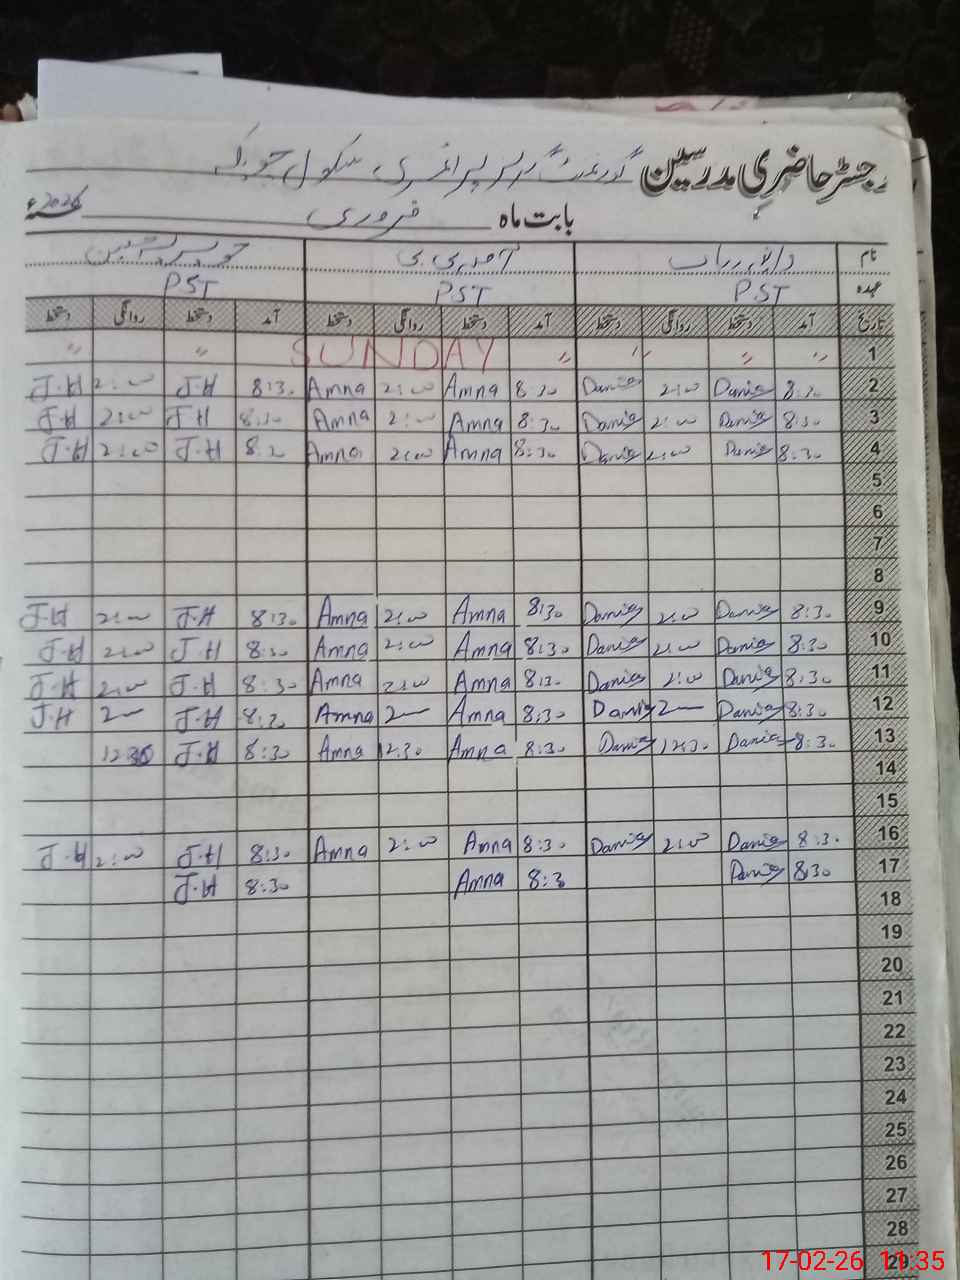 رجسٹر حاضری مدرسین گورنمنٹ گرلز پرائمری سکول
بابت ماہ فروری 2026ء
نام
عہدہ PST PST PST
تاریخ آمد دستخط روانگی دستخط آمد دستخط روانگی دستخط آمد دستخط روانگی دستخط
1 " " " " SUNDAY " "
2 8:30 Dania 2:00 Dania 8:30 Amna 2:00 Amna 8:30 J.H 2:00 J.H
3 8:30 Dania 2:00 Dania 8:30 Amna 2:00 Amna 8:30 J.H 2:00 J.H
4 8:30 Dania 2:00 Dania 8:30 Amna 2:00 Amna 8:30 J.H 2:00 J.H
5
6
7
8
9 8:30 Dania 2:00 Dania 8:30 Amna 2:00 Amna 8:30 J.H 2:00 J.H
10 8:30 Dania 2:00 Dania 8:30 Amna 2:00 Amna 8:30 J.H 2:00 J.H
11 8:30 Dania 2:00 Dania 8:30 Amna 2:00 Amna 8:30 J.H 2:00 J.H
12 8:30 Dania 2 Dania 8:30 Amna 2 Amna 8:30 J.H 2 J.H
13 8:30 Dania 12:30 Dania 8:30 Amna 12:30 Amna 8:30 J.H 12:30
14
15
16 8:30 Dania 2:00 Dania 8:30 Amna 2:00 Amna 8:30 J.H 2:00 J.H
17 8:30 Dania 8:3 Amna 8:30 J.H
18
19
20
21
22
23
24
25
26
27
28
29
17-02-26 11:35